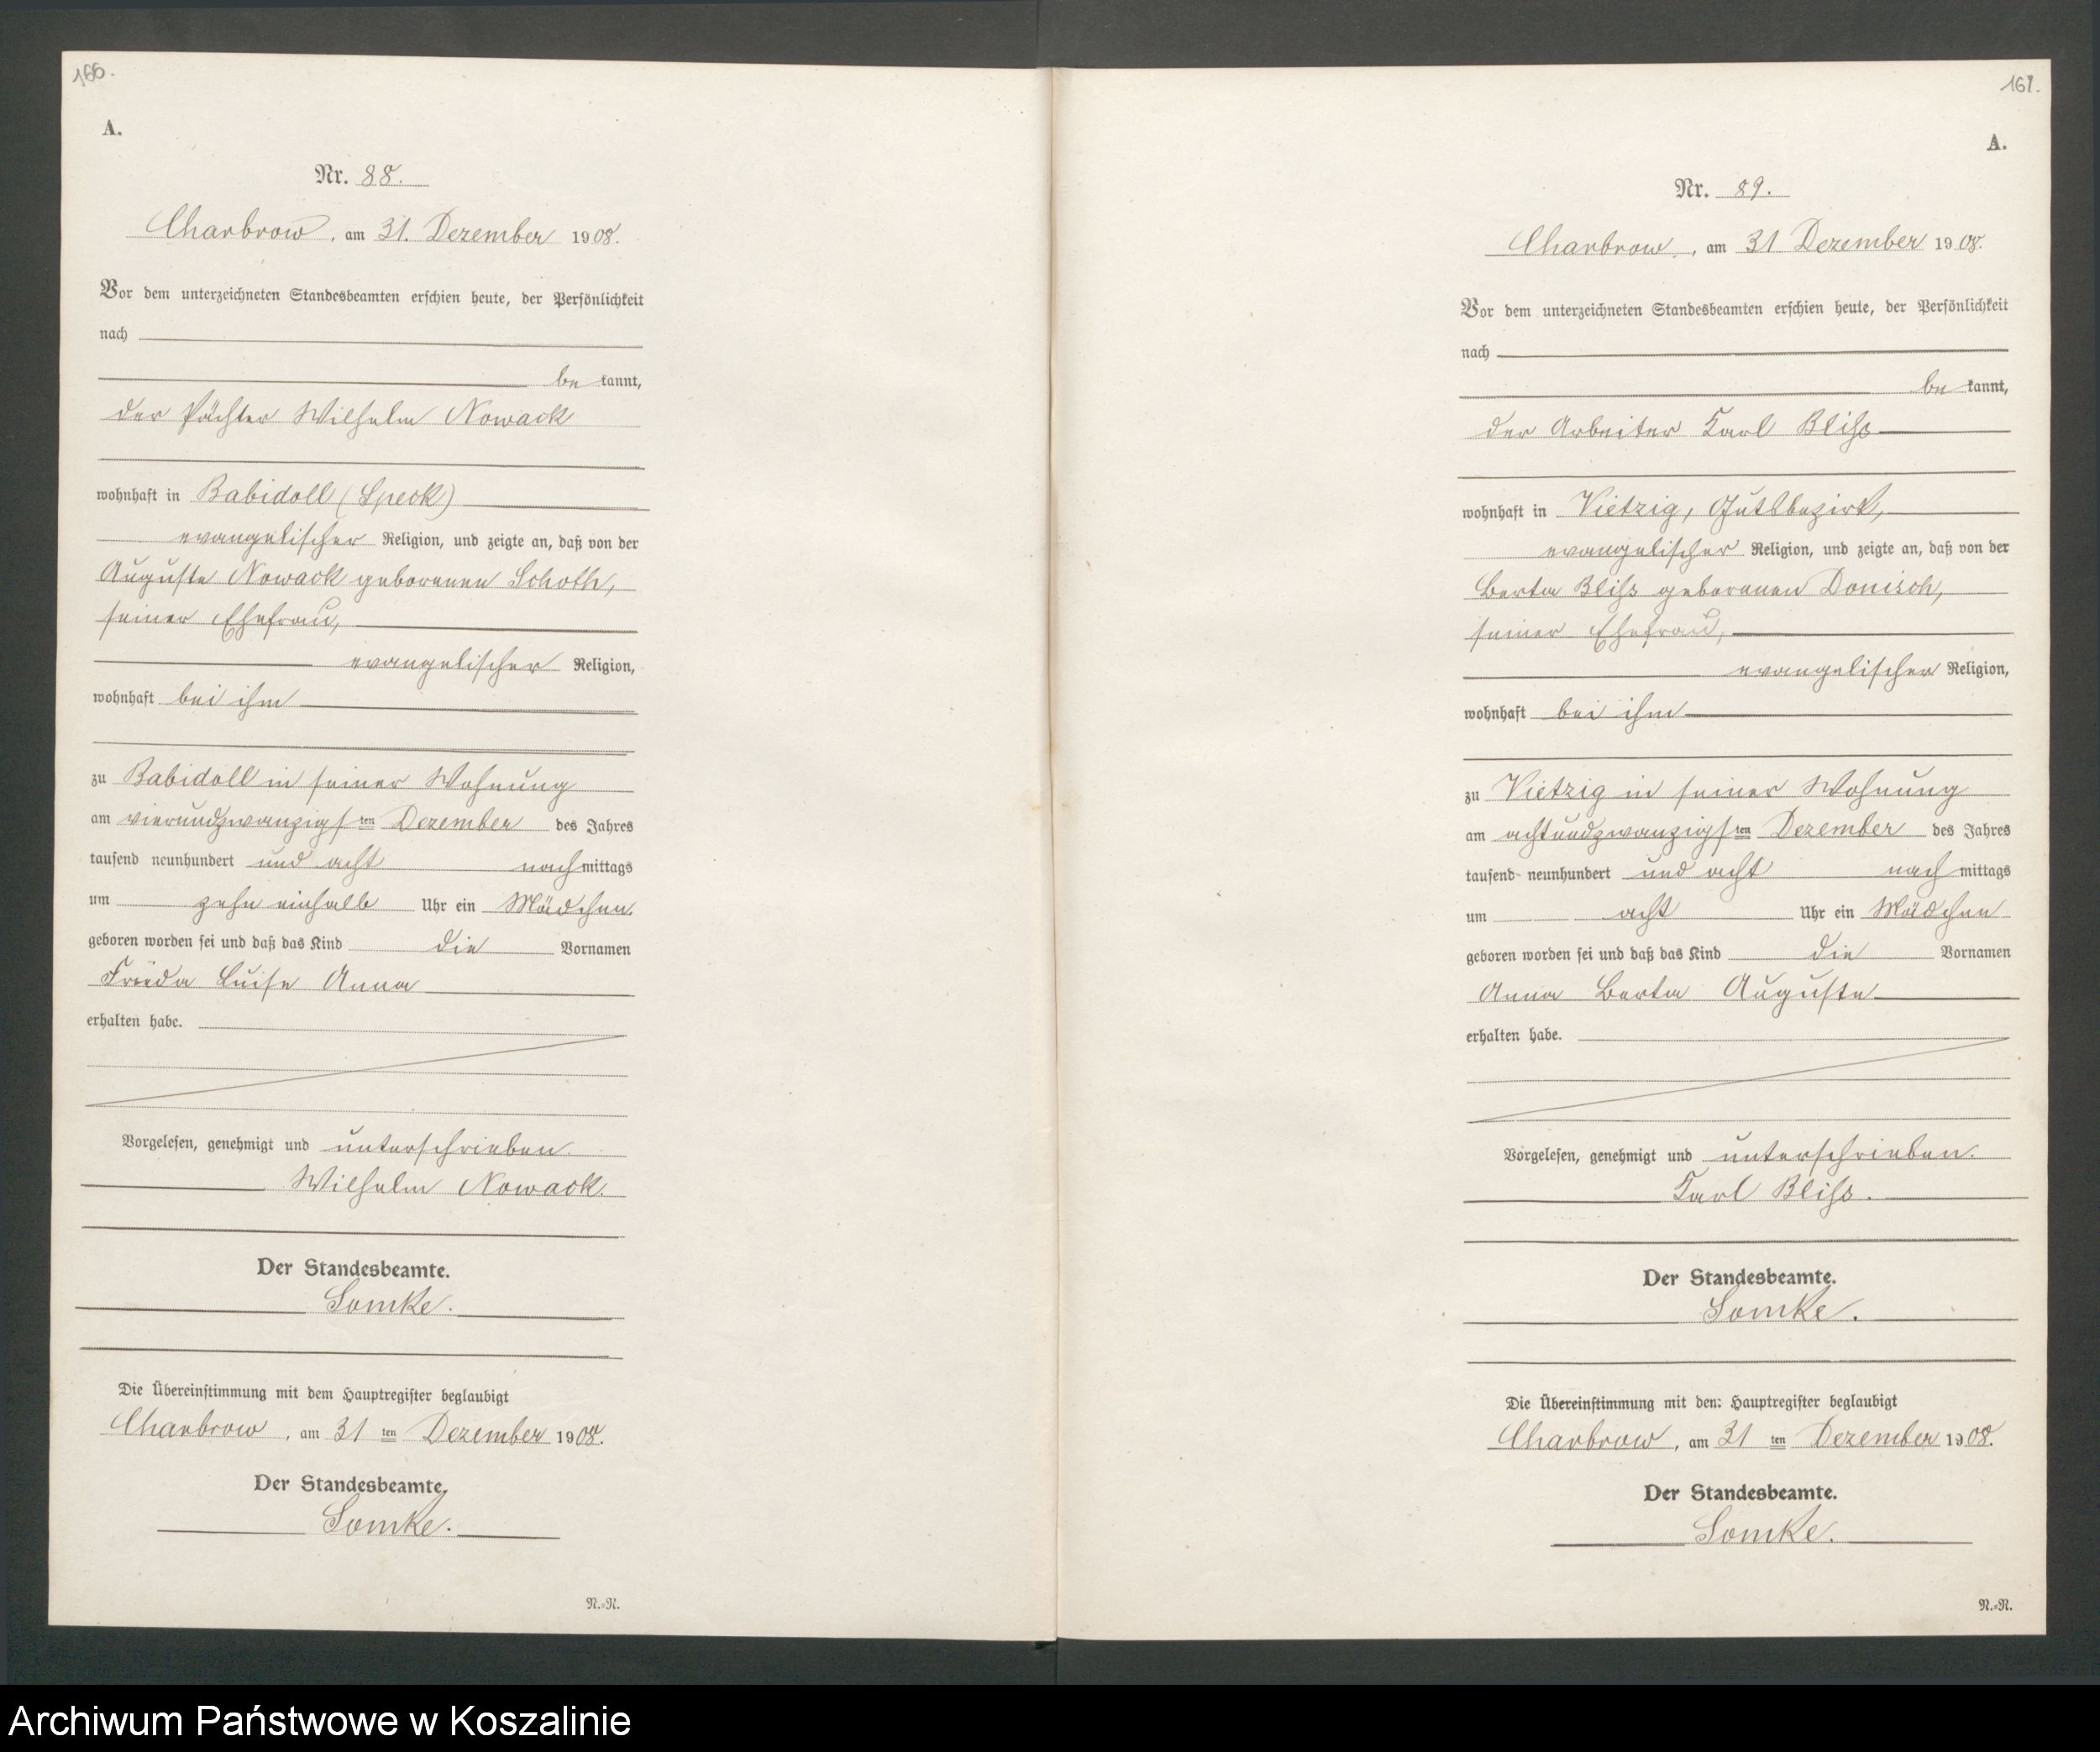 166.
A.
Nr. 88.
Charbrow, am 31. Dezember 1908.
Vor dem unterzeichneten Standesbeamten erschien heute, der Persönlichkeit
nach
be kannt,
der Pächter Wilhelm Nowack
wohnhaft in Babidoll (Speck)
evangelischer Religion, und zeigte an, daß von der
Auguste Nowack geborenen Schoth,
seiner Ehefrau,
evangelischer Religion,
wohnhaft bei ihm
zu Babidoll in seiner Wohnung
am vierundzwanzigsten Dezember des Jahres
tausend neunhundert und acht nachmittags
um zehn einhalb Uhr ein Mädchen
geboren worden sei und daß das Kind die Vornamen
Frieda Luise Anna
erhalten habe.
Vorgelesen, genehmigt und unterschrieben.
Wilhelm Nowack.
Der Standesbeamte.
Somke.
Die Übereinstimmung mit dem Hauptregister beglaubigt
Charbrow, am 31 ten Dezember 1908.
Der Standesbeamte.
Somke.
N.=N.
167.
A.
Nr. 89.
Charbrow, am 31 Dezember 1908.
Vor dem unterzeichneten Standesbeamten erschien heute, der Persönlichkeit
nach
be kannt,
der Arbeiter Karl Bliß
wohnhaft in Vietzig, Gutsbezirk,
evangelischer Religion, und zeigte an, daß von der
Berta Bliß geborenen Donisch,
seiner Ehefrau,
evangelischer Religion,
wohnhaft bei ihm
zu Vietzig in seiner Wohnung
am achtundzwanzigsten Dezember des Jahres
tausend neunhundert und acht nachmittags
um acht Uhr ein Mädchen
geboren worden sei und daß das Kind die Vornamen
Anna Berta Auguste
erhalten habe.
Vorgelesen, genehmigt und unterschrieben.
Karl Bliß.
Der Standesbeamte.
Somke.
Die Übereinstimmung mit dem Hauptregister beglaubigt
Charbrow, am 31 ten Dezember 1908.
Der Standesbeamte.
Somke.
N.=N.
Archiwum Państwowe w Koszalinie